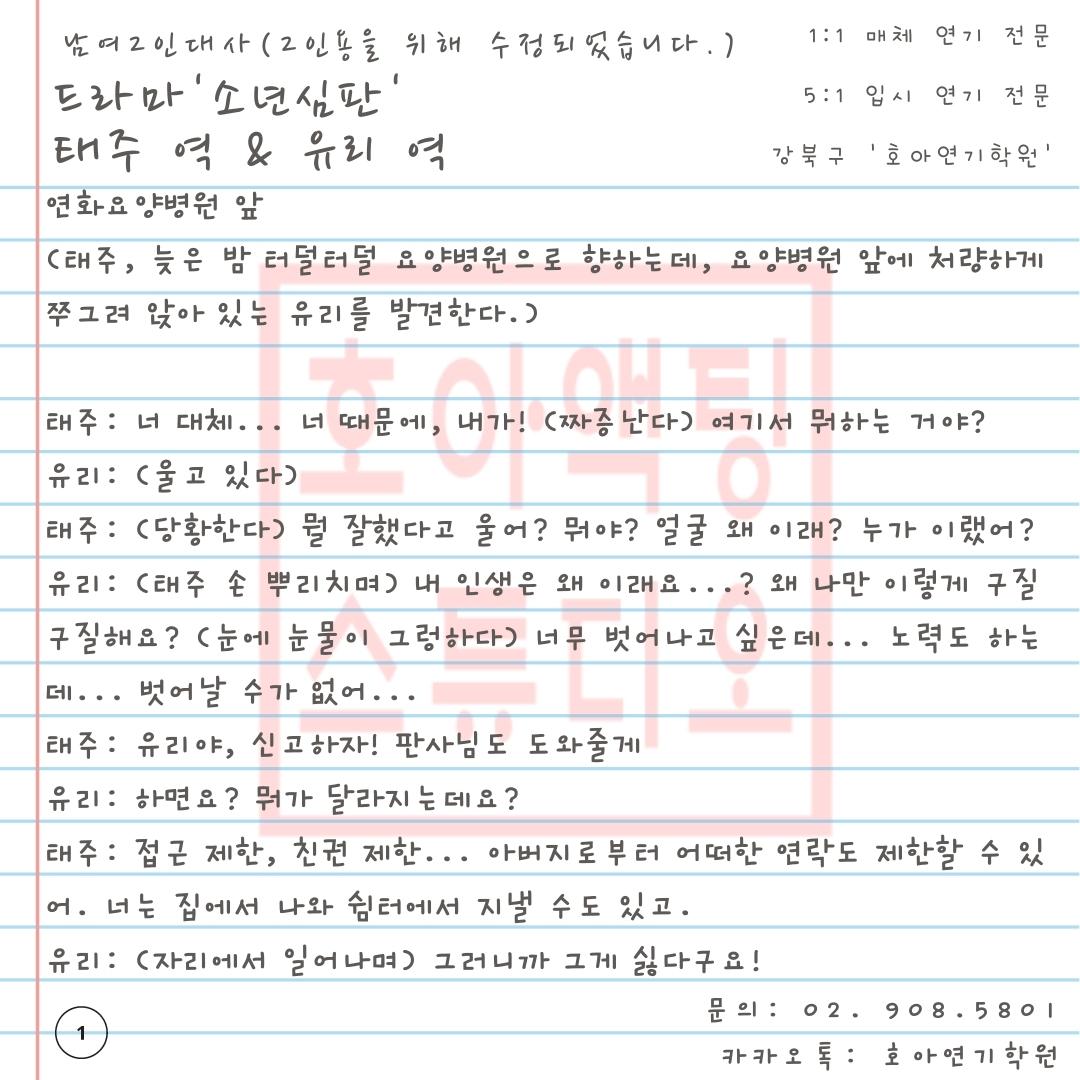 남여2인대사(2인용을 위해 수정되었습니다.)
1:1 매체 연기 전문
드라마'소년심판'
5:1 입시 연기 전문
태주 역 & 유리 역
강북구 '호아연기학원'
연화요양병원 앞
(태주, 늦은 밤 터덜터덜 요양병원으로 향하는데, 요양병원 앞에 처량하게
쭈그려 앉아 있는 유리를 발견한다.)
태주: 너 대체... 너 때문에, 내가! (짜증난다) 여기서 뭐하는 거야?
유리: (울고 있다)
태주: (당황한다) 뭘 잘했다고 울어? 뭐야? 얼굴 왜 이래? 누가 이랬어?
유리: (태주 손 뿌리치며) 내 인생은 왜 이래요...? 왜 나만 이렇게 구질
구질해요? (눈에 눈물이 그렁하다) 너무 벗어나고 싶은데... 노력도 하는
데... 벗어날 수가 없어...
태주: 유리야, 신고하자! 판사님도 도와줄게
유리: 하면요? 뭐가 달라지는데요?
태주: 접근 제한, 친권 제한... 아버지로부터 어떠한 연락도 제한할 수 있
어. 너는 집에서 나와 쉼터에서 지낼 수도 있고.
유리: (자리에서 일어나며) 그러니까 그게 싫다구요!
호아액팅
스튜디오
문의: 02. 908.5801
1
카카오톡: 호아연기학원